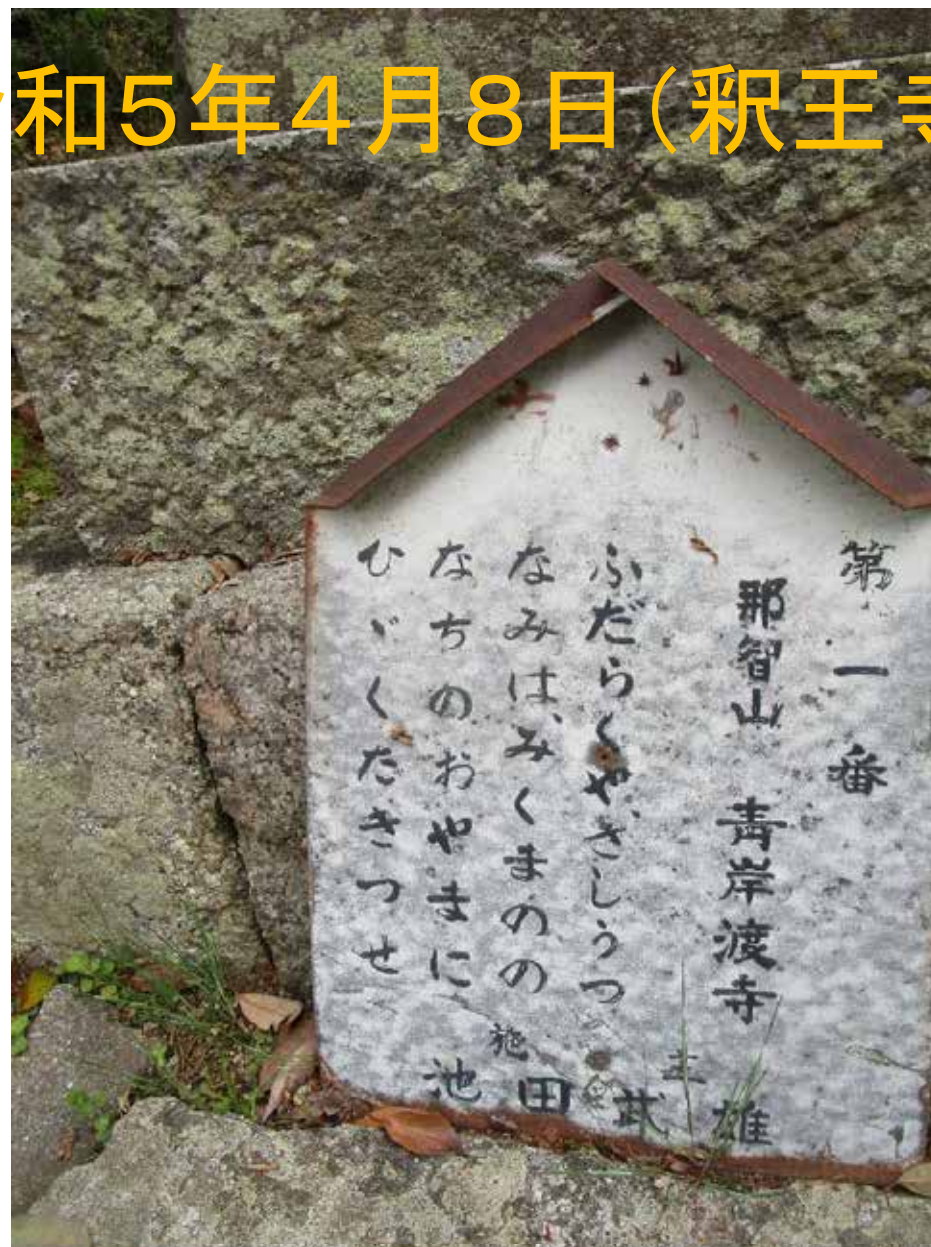 和５年４月８日（釈王寺
第一番
那智山 青岸渡寺
ふだらくや、きしうつ
なみは、みくまのの
なちのおやまに
ひゞくたきつせ
施 主
池田武雄